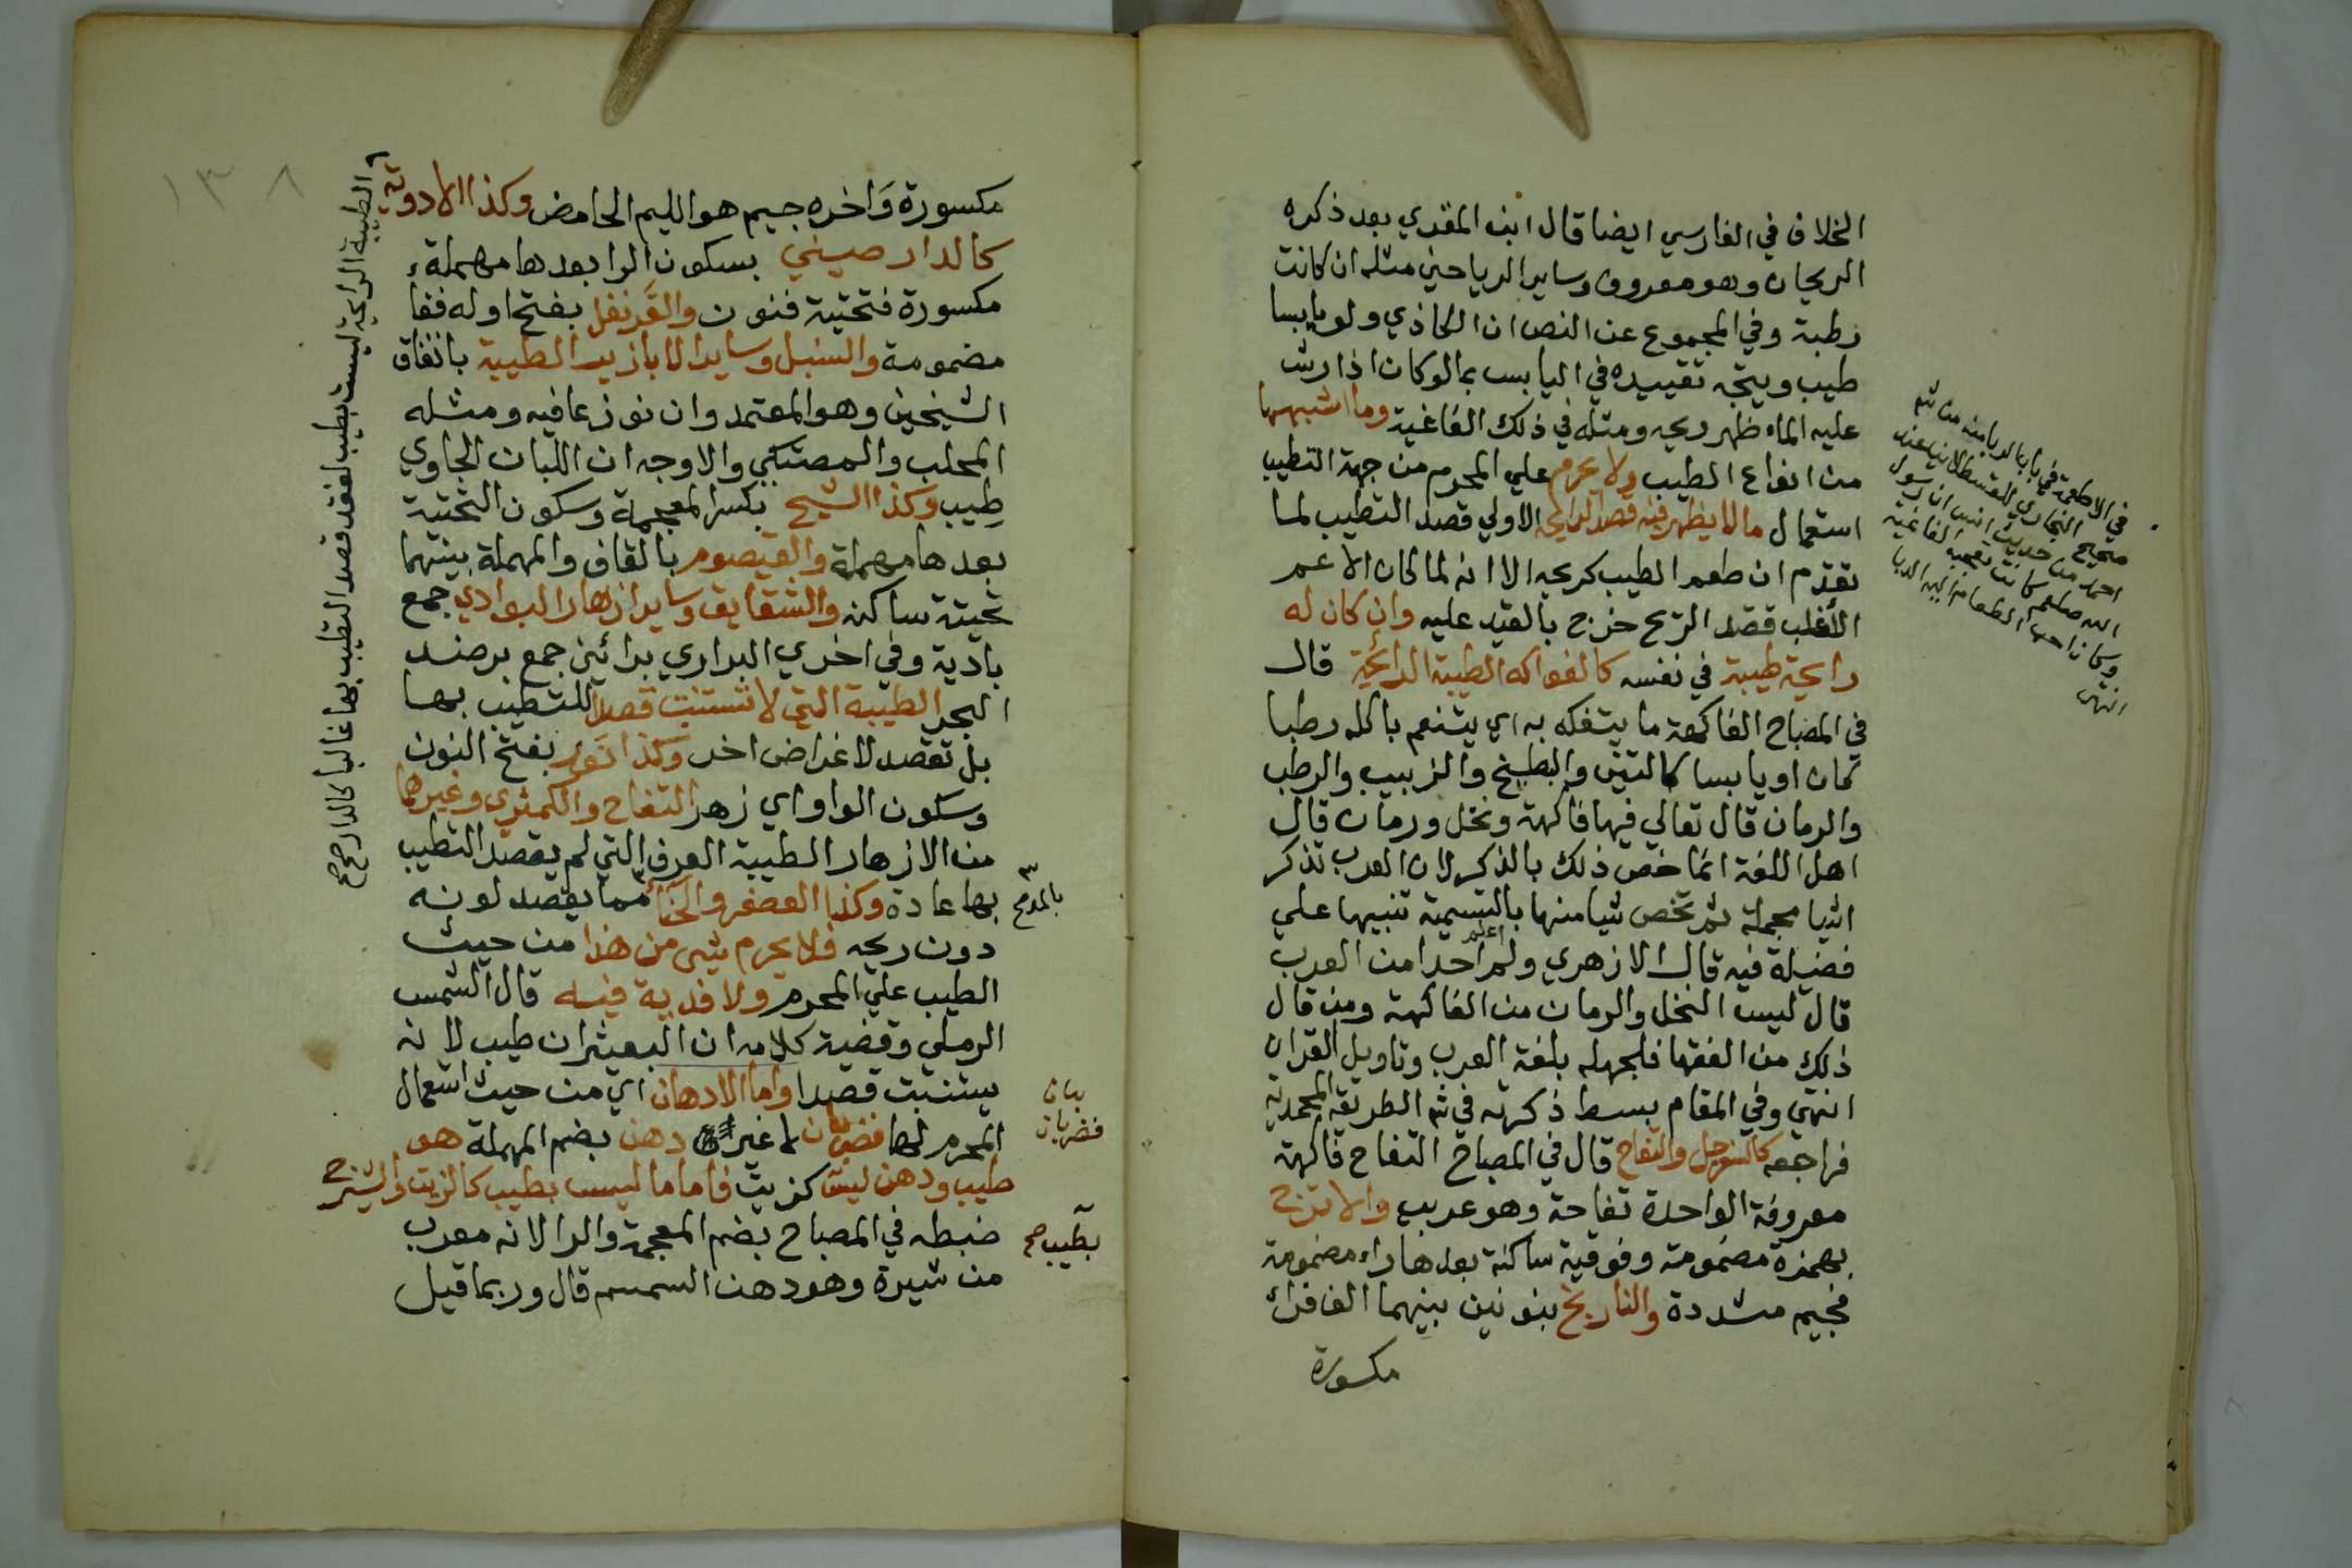 الخلاف في الفارسي ايضا قال ابن المقري بعد ذكره
الريحان وهو معروف وساير الرياحين مثله ان كانت
رطبة وفي المجموع عن النص ان الكاذي ولو يابسا
طيب ويتجه تقييده في اليابس بما لو كان اذا رش
عليه الماء ظهر ريحه ومثله في ذلك الفاغية وما اشبهها
من انواع الطيب ولا يحرم علي المحرم من جهة التطيب
استعمال ما لا يظهر فيه قصد الرايحة الاولي قصد التطيب لما
تقدم ان طعم الطيب كريحه الا انه لما كان الاعم
الاغلب قصد الريح خرج بالقيد عليه وان كان له
رايحة طيبة في نفسه كالفواكه الطيبة الرائحة قال
في المصباح الفاكهة ما يتفكه به اي يتنعم باكله رطبا
كان او يابسا كالتين والبطيخ والزبيب والرطب
والرمان قال تعالي فيها فاكهة ونخل ورمان قال
اهل اللغة انما خص ذلك بالذكر لان العرب تذكر
اشيا مجملة ثم تخص شيا منها بالتسمية تنبيها علي
فضيلة فيه قال الازهري ولم اعلم احدا من العرب
قال ليس النخل والرمان من الفاكهة ومن قال
ذلك من الفقها فلجهله بلغة العرب وتاويل القران
انتهي وفي المقام بسط ذكرته في شرح الطريقة المحمدية
فراجعه كالسفرجل والتفاح قال في المصباح التفاح فاكهة
معروفة الواحدة تفاحة وهو عربي والاترج
بهمزة مضمومة وفوقية ساكنة بعدها راء مضمومة
فجيم مشددة والنارنج بنونين بينهما الف فراء
مكسورة
في الاطعمة في باب الدبا منه من شرح
صحيح البخاري للقسطلاني عند
احمد من حديث انس ان رسول
الله صلعم كانت تعجبه الفاغية
وكان احب الطعام اليه الدبا
انتهى
١٣٨
مكسورة وَاخره جيم هو الليم الحامض وكذا الادوية
كالدار صيني بسكون الرا بعدها مهملة
مكسورة فتحتية فنون والقَرنفل بفتح اوله ففا
مضمومة والسنبل وساير الابازير الطيبة باتفاق
الشيخين وهو المعتمد وان نوزعا فيه ومثله
المحلب والمصتكي والاوجه ان اللبان الجاوي
طِيب وكذا الشيح بكسر المعجمة وسكون التحتية
بعدها مهملة والقيصوم بالقاف والمهملة بينهما
تحيتة ساكنه والشقايق وساير ازهار البوادي جمع
بادية وفي اخري البراري برائين جمع بر ضد
البحر الطيبة التي لا تستنبت قصدا للتطيب بها
بل تقصد لاغراض اخر وكذا نَور بفتح النون
وسكون الواو اي زهر التفاح والكمثري وغيرهما
من الازهار الطيبة العرف التي لم يقصد التطيب
بها عادة وكذا العصفر والحنّا مما يقصد لونه
دون ريحه فلا يحرم شي من هذا من حيث
الطيب علي المحرم ولا فدية فيه قال الشمس
الرملي وقضية كلامه ان البعيثران طيب لانه
يستنبت قصدا واما الادهان اي من حيث استعمال
المحرم لها فضربان لا غير دهن بضم المهملة هو
طيب ودهن ليس كزيت فاما ما ليس بطيب كالزيت والشيرج
ضبطه في المصباح بضم المعجمة والرا لانه معرب
من شيرة وهو دهن السمسم قال وربما قيل
الطيبة الرايحة ليست بطيب لفقد قصد التطيب بها غالبا كالدار صح صح
بالمد صح
بيان
فضربان
بطيب صح